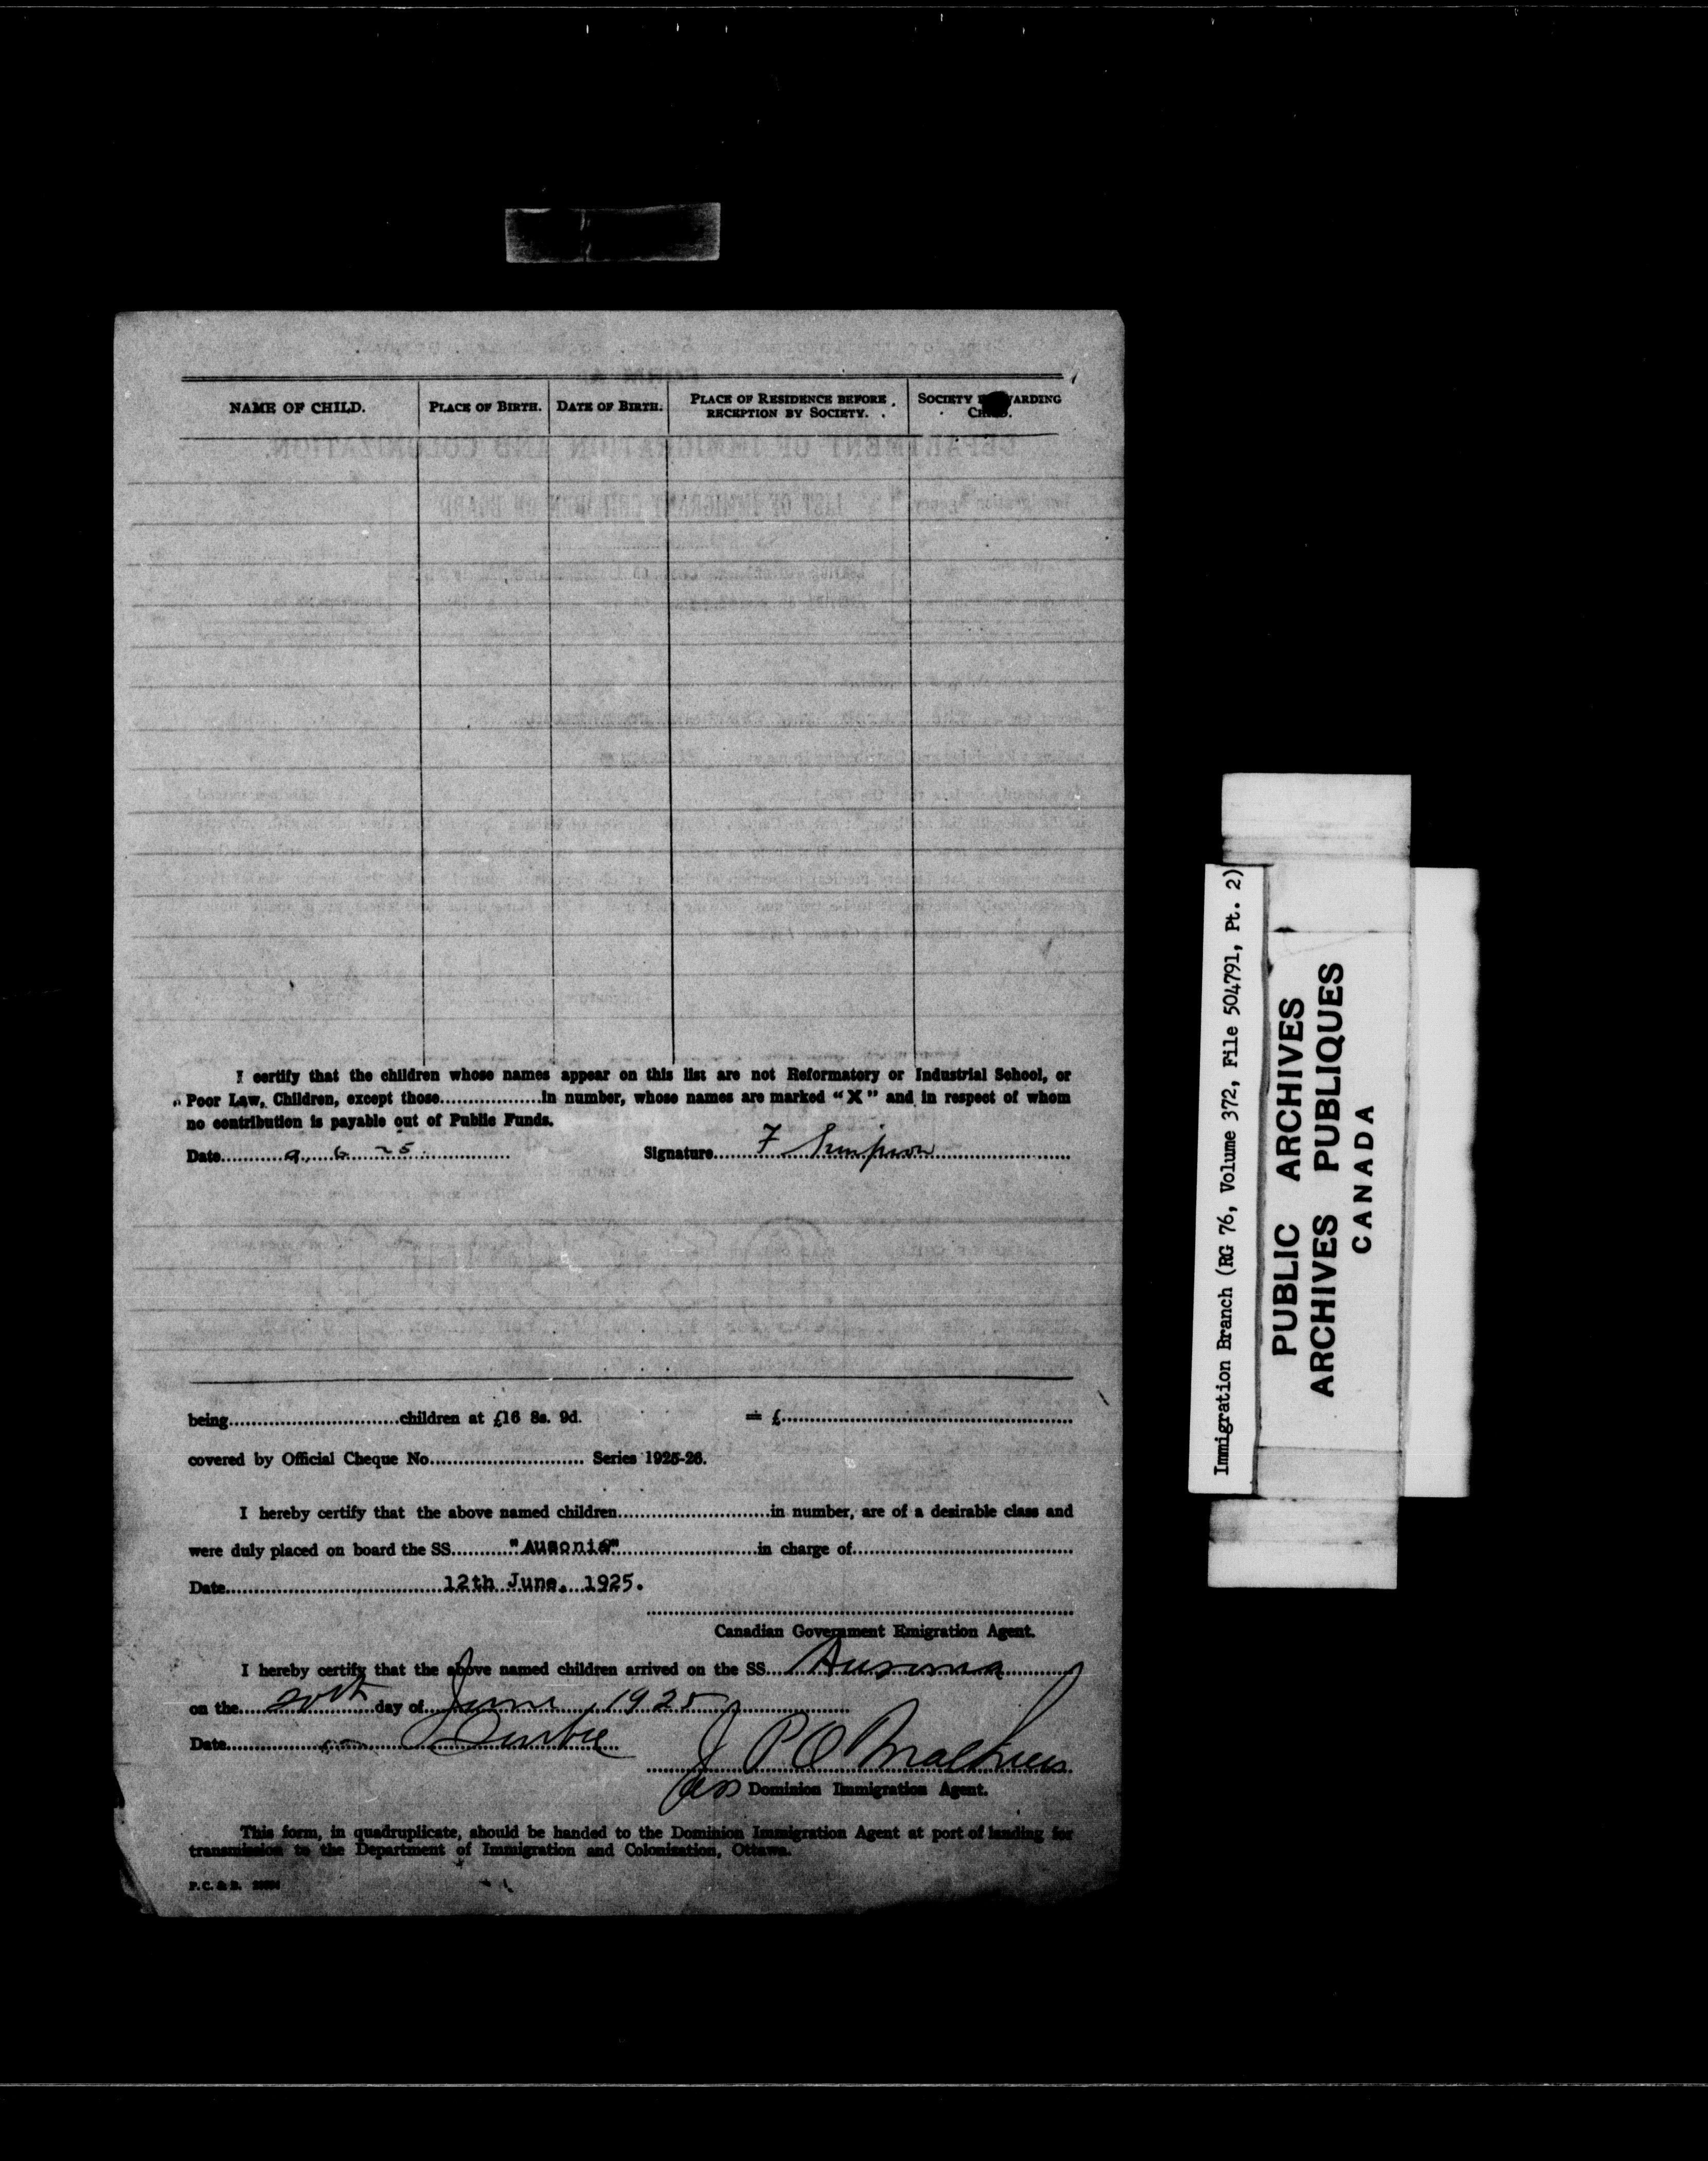 NAME OF CHILD. PLACE OF BIRTH. DATE OF BIRTH. PLACE OF RESIDENCE BEFORE RECEPTION BY SOCIETY. SOCIETY
I certify that the children whose names appear on this list are not Reformatory or Industrial School, or
Poor Law, Children, except those..................in number, whose names are marked “X” and in respect of whom
no contribution is payable out of Public Funds.
Date 9. 6 25. Signature F Simpson
being..............................children at £16 8s. 9d. = £....................................................
covered by Official Cheque No........................... Series 1925-26.
I hereby certify that the above named children...........................in number, are of a desirable class and
were duly placed on board the SS "Ausonia" in charge of.......................................
Date 12th June, 1925.
Canadian Government Emigration Agent.
I hereby certify that the above named children arrived on the SS Ausonia
on the 20th day of June, 1925
Date
Dominion Immigration Agent.
This form, in quadruplicate, should be handed to the Dominion Immigration Agent at port of landing for
transmission to the Department of Immigration and Colonization, Ottawa.
P. C. & B.
Immigration Branch (RG 76, Volume 372, File 504791, Pt. 2)
PUBLIC ARCHIVES
ARCHIVES PUBLIQUES
CANADA